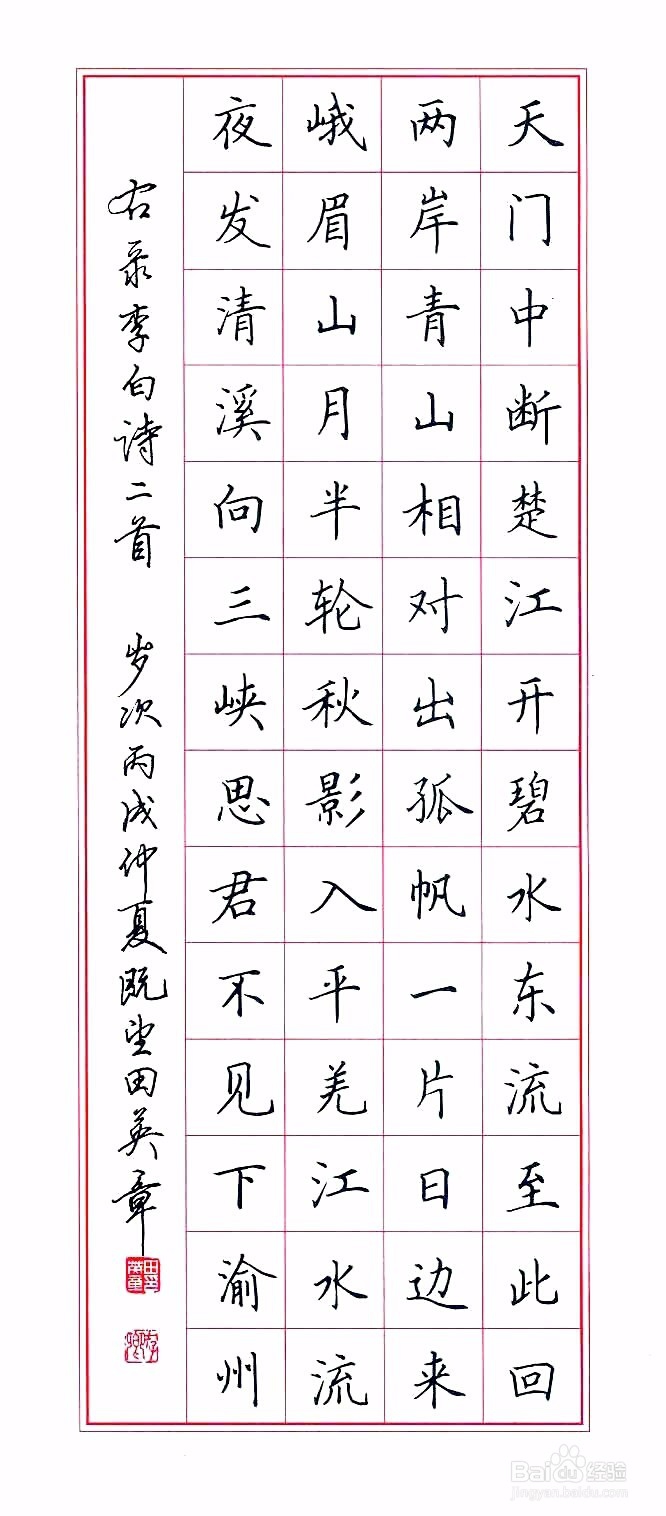 天门中断楚江开碧水东流至此回
两岸青山相对出孤帆一片日边来
峨眉山月半轮秋影入平羌江水流
夜发清溪向三峡思君不见下渝州
右录李白诗二首 岁次丙戌仲夏既望田英章
Baidu经验
jingyan.baidu.com